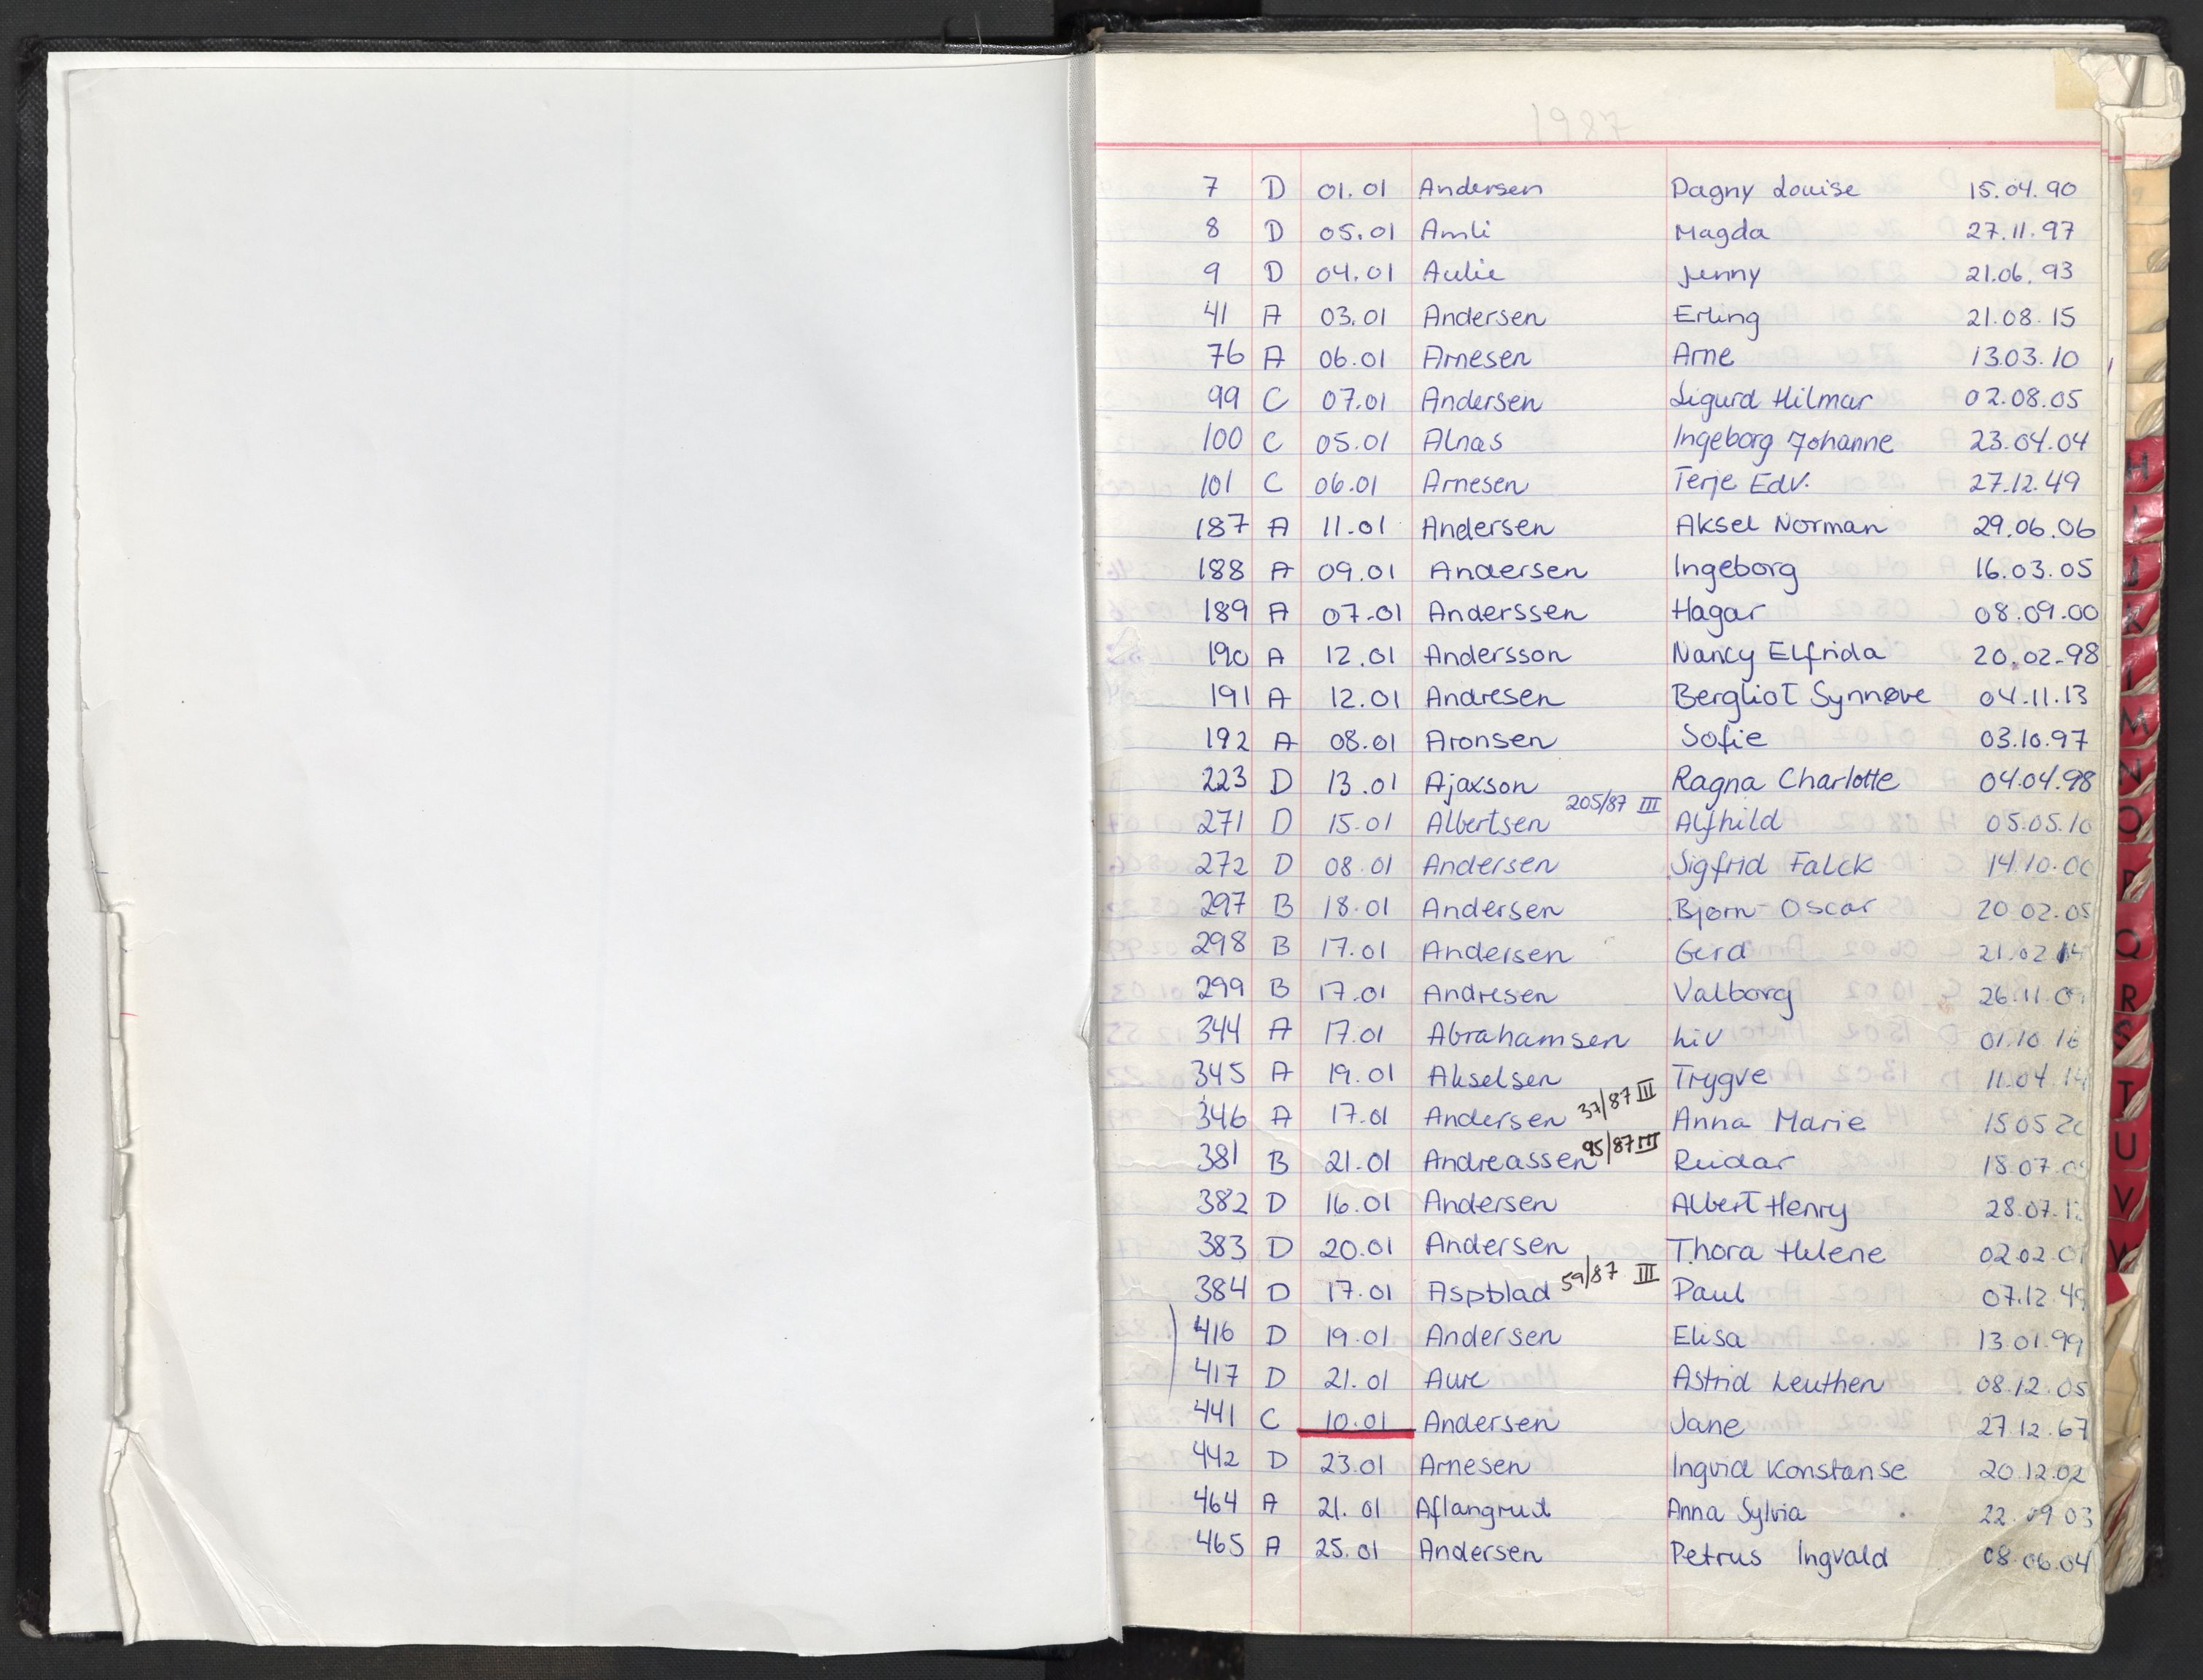 1987
7 D 01.01 Andersen Dagny Louise 15.04.90
8 D 05.01 Amli Magda 27.11.97
9 D 04.01 Aulie Jenny 21.06.93
41 A 03.01 Andersen Erling 21.08.15
76 A 06.01 Arnesen Arne 13.03.10
99 C 07.01 Andersen Sigurd Hilmar 02.08.05
100 C 05.01 Alnas Ingeborg Johanne 23.04.04
101 C 06.01 Arnesen Terje Edv. 27.12.49
187 A 11.01 Andersen Aksel Norman 29.06.06
188 A 09.01 Andersen Ingeborg 16.03.05
189 A 07.01 Anderssen Hagar 08.09.00
190 A 12.01 Andersson Nancy Elfrida 20.02.98
191 A 12.01 Andresen Bergliot Synnøve 04.11.13
192 A 08.01 Aronsen Sofie 03.10.97
223 D 13.01 Ajaxson Ragna Charlotte 04.04.98
271 D 15.01 Albertsen 205/87 III Alfhild 05.05.10
272 D 08.01 Andersen Sigfrid Falck 14.10.00
297 B 18.01 Andersen Bjørn-Oscar 20.02.05
298 B 17.01 Andersen Gerd 21.02.14
299 B 17.01 Andresen Valborg 26.11.09
344 A 17.01 Abrahamsen Liv 01.10.16
345 A 19.01 Akselsen Trygve 11.04.14
346 A 17.01 Andersen 37/87 III Anna Marie 15.05.20
381 B 21.01 Andreassen 95/87 III Reidar 18.07.
382 D 16.01 Andersen Albert Henry 28.07.1
383 D 20.01 Andersen Thora Helene 02.02.0
384 D 17.01 Aspblad 59/87 III Paul 07.12.49
416 D 19.01 Andersen Elisa 13.01.99
417 D 21.01 Aure Astrid Leuthen 08.12.05
441 C 10.01 Andersen Jane 27.12.67
442 D 23.01 Arnesen Ingrid Konstanse 20.12.02
464 A 21.01 Aflangrud Anna Sylvia 22.09.03
465 A 25.01 Andersen Petrus Ingvald 08.06.04
H
I
J
K
L
M
N
O
P
Q
R
S
T
U
V
W